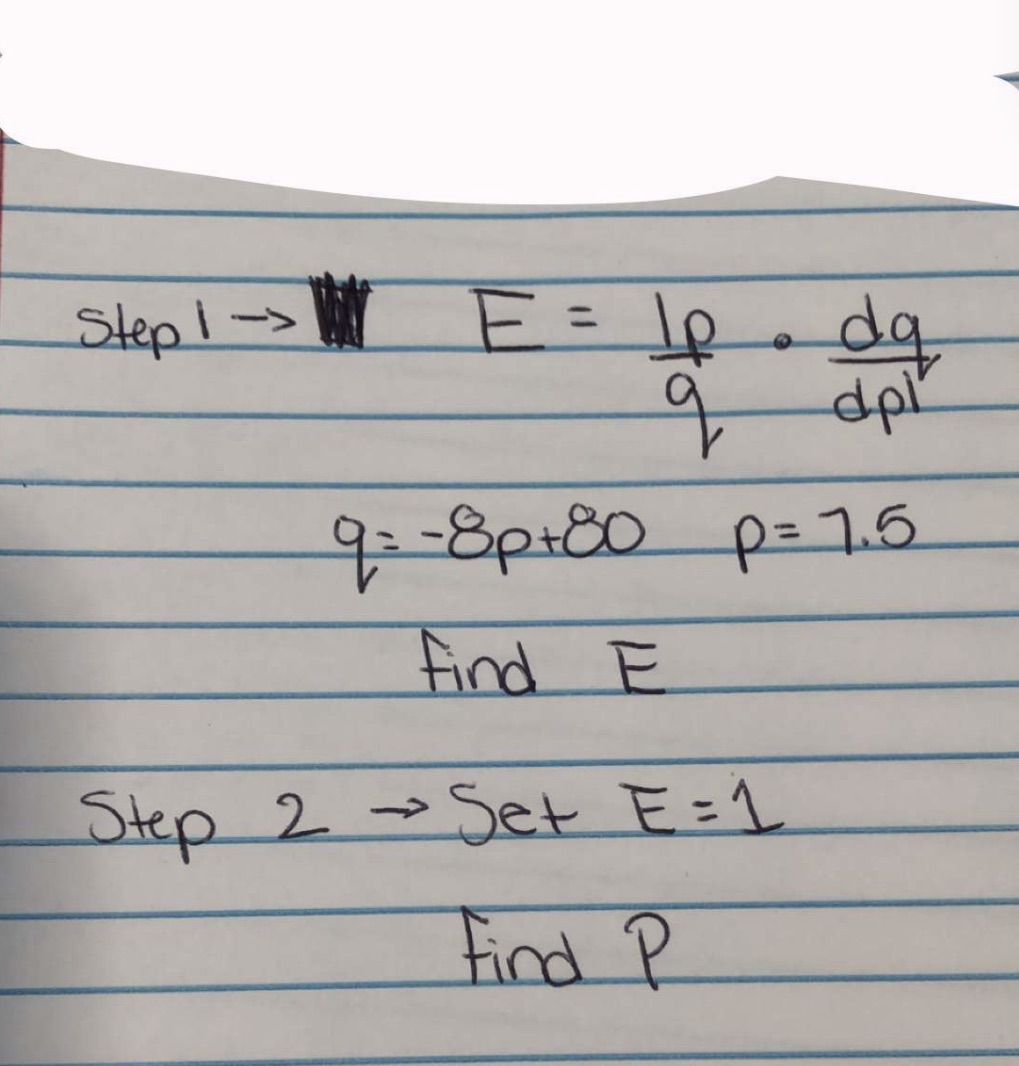 Step 1 → E = |p/q • dq/dp|
q = -8p+80 p = 7.5
find E
Step 2 → Set E = 1
find P